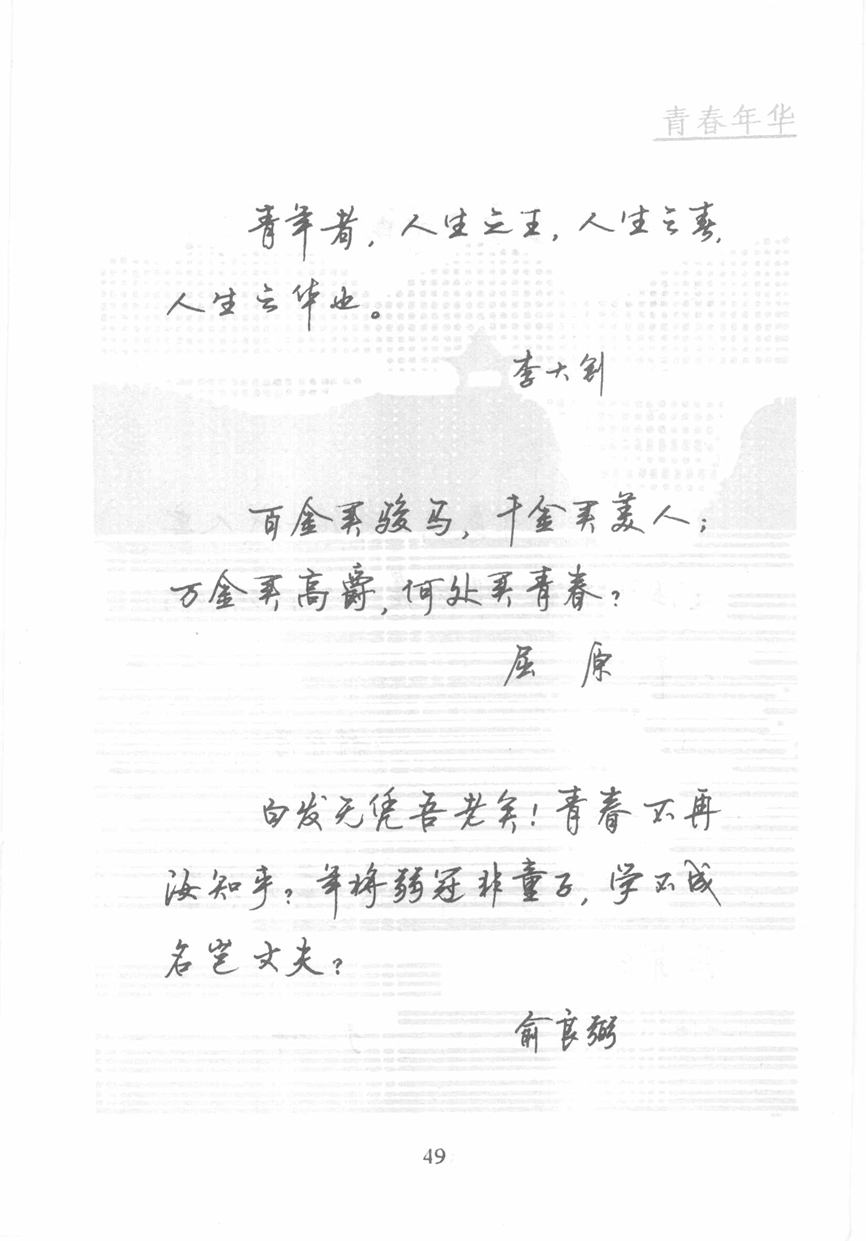 青春年华
青年者，人生之王，人生之春，
人生之华也。
李大钊
百金买骏马，千金买美人；
万金买高爵，何处买青春？
屈　原
白发无凭吾老矣！青春不再
汝知乎？年将弱冠非童子，学不成
名岂丈夫？
俞良弼
49